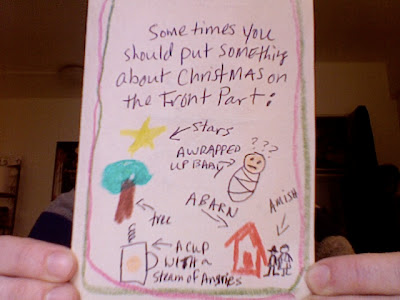 Some times you
should put something
about CHRISTMAS on
the Front Part:
Stars
A WRAPPED
UP BABY
???
A BARN
AMISH
tree
A CUP
WITH a
Steam of Angries